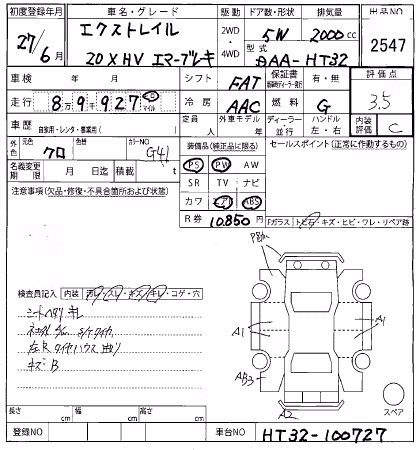 初度登録年月 車名・グレード 駆動 ドア数・形状 排気量 出品NO
27/6月 エクストレイル 2WD 5W 2000cc 2547
20XHV エマーブレキ 4WD 型式 DAA-HT32
車検 年 月 シフト FAT 保証書 有・無 評価点
走行 8万9千927 km マイル 冷房 AAC 燃料 G 3.5
車歴 自家用・レンタ・事業用( ) 定員 人 外車モデル 年 ディーラー 並行 ハンドル 左・右 内装評価 C
外色 元色 クロ 色替 カラーNO G41
装備品(純正品に限る) セールスポイント(正常に作動するもの)
名義変更期限 月 日迄 積載 t
PS PW AW
SR TV ナビ
カワ エアB ABS
注意事項(欠品・修復・不具合箇所および状態)
R券 10,850円 Fガラス トビ石・キズ・ヒビ・ワレ・リペア跡
検査員記入 内装 汚レ・スレ・キズ・キレ・コゲ・穴
シートヘタリ キレ
左R タイヤハウス 曲り
キズ・B
A1
A1
AB3
A2
スペア
長さ cm 幅 cm 高さ cm
登録NO 車台NO HT32-100727